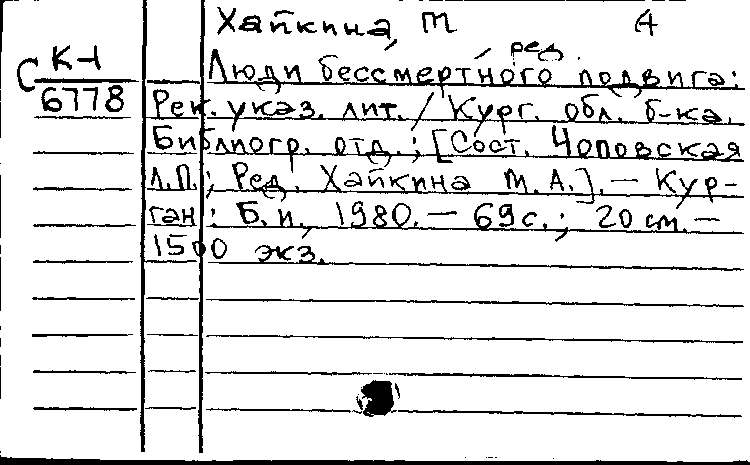 Хайкина, М А
, ред.
С К-1
6778
Люди бессмертного подвига:
Рек. указ. лит. / Кург. обл. б-ка.
Библиогр. отд.; [Сост. Чоповская
Л.П.; Ред. Хайкина М.А.]. — Кур-
ган: Б.и., 1980. — 69 с.; 20 см. —
1500 экз.